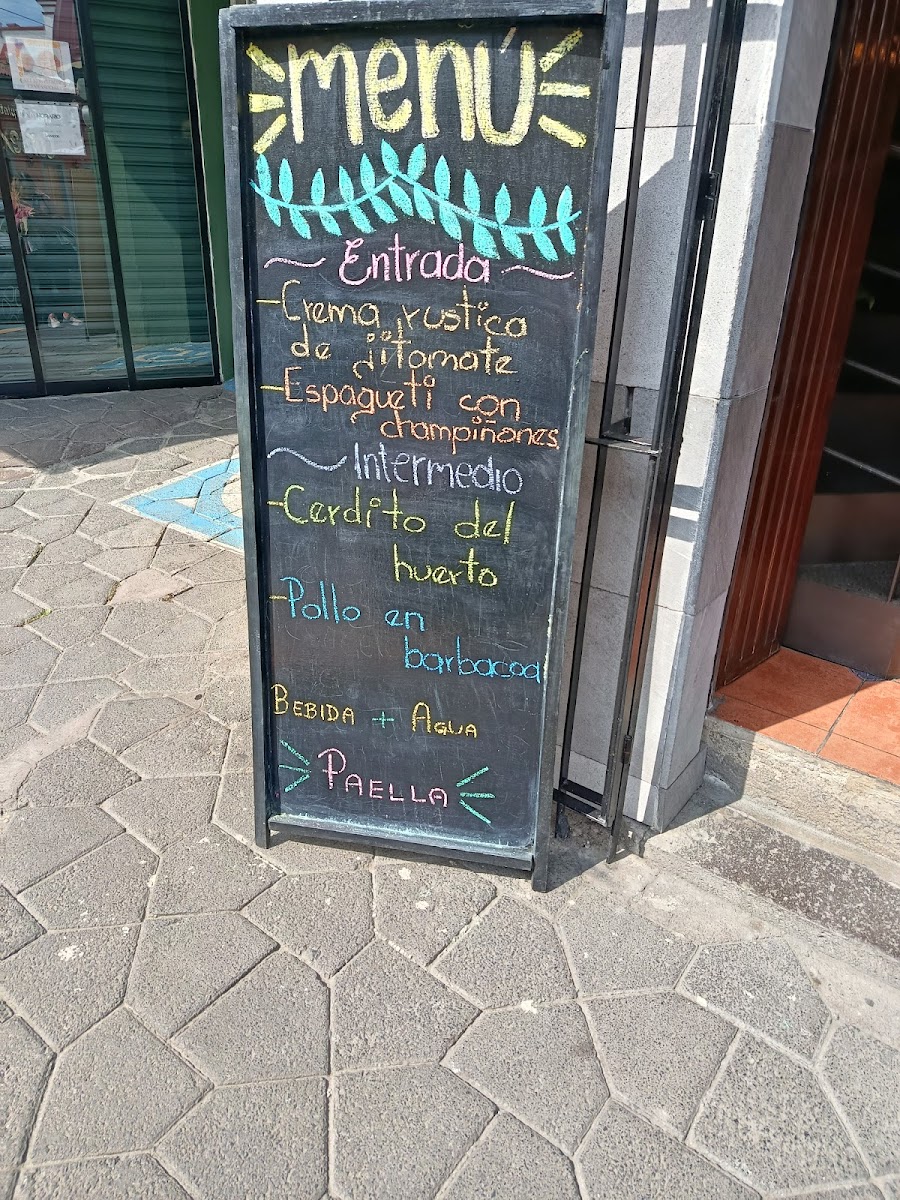 menú
Entrada
-Crema rustica
de jitomate
-Espagueti con
champiñones
Intermedio
-Cerdito del
huerto
-Pollo en
barbacoa
BEBIDA + AGUA
PAELLA